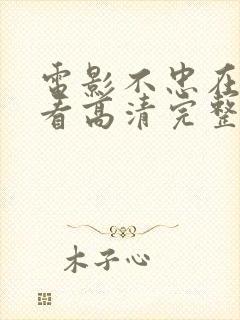 电影不忠在
看高清完整
木子心